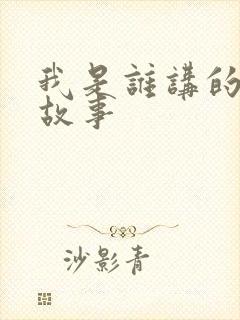 我是誰講的
故事
沙影青